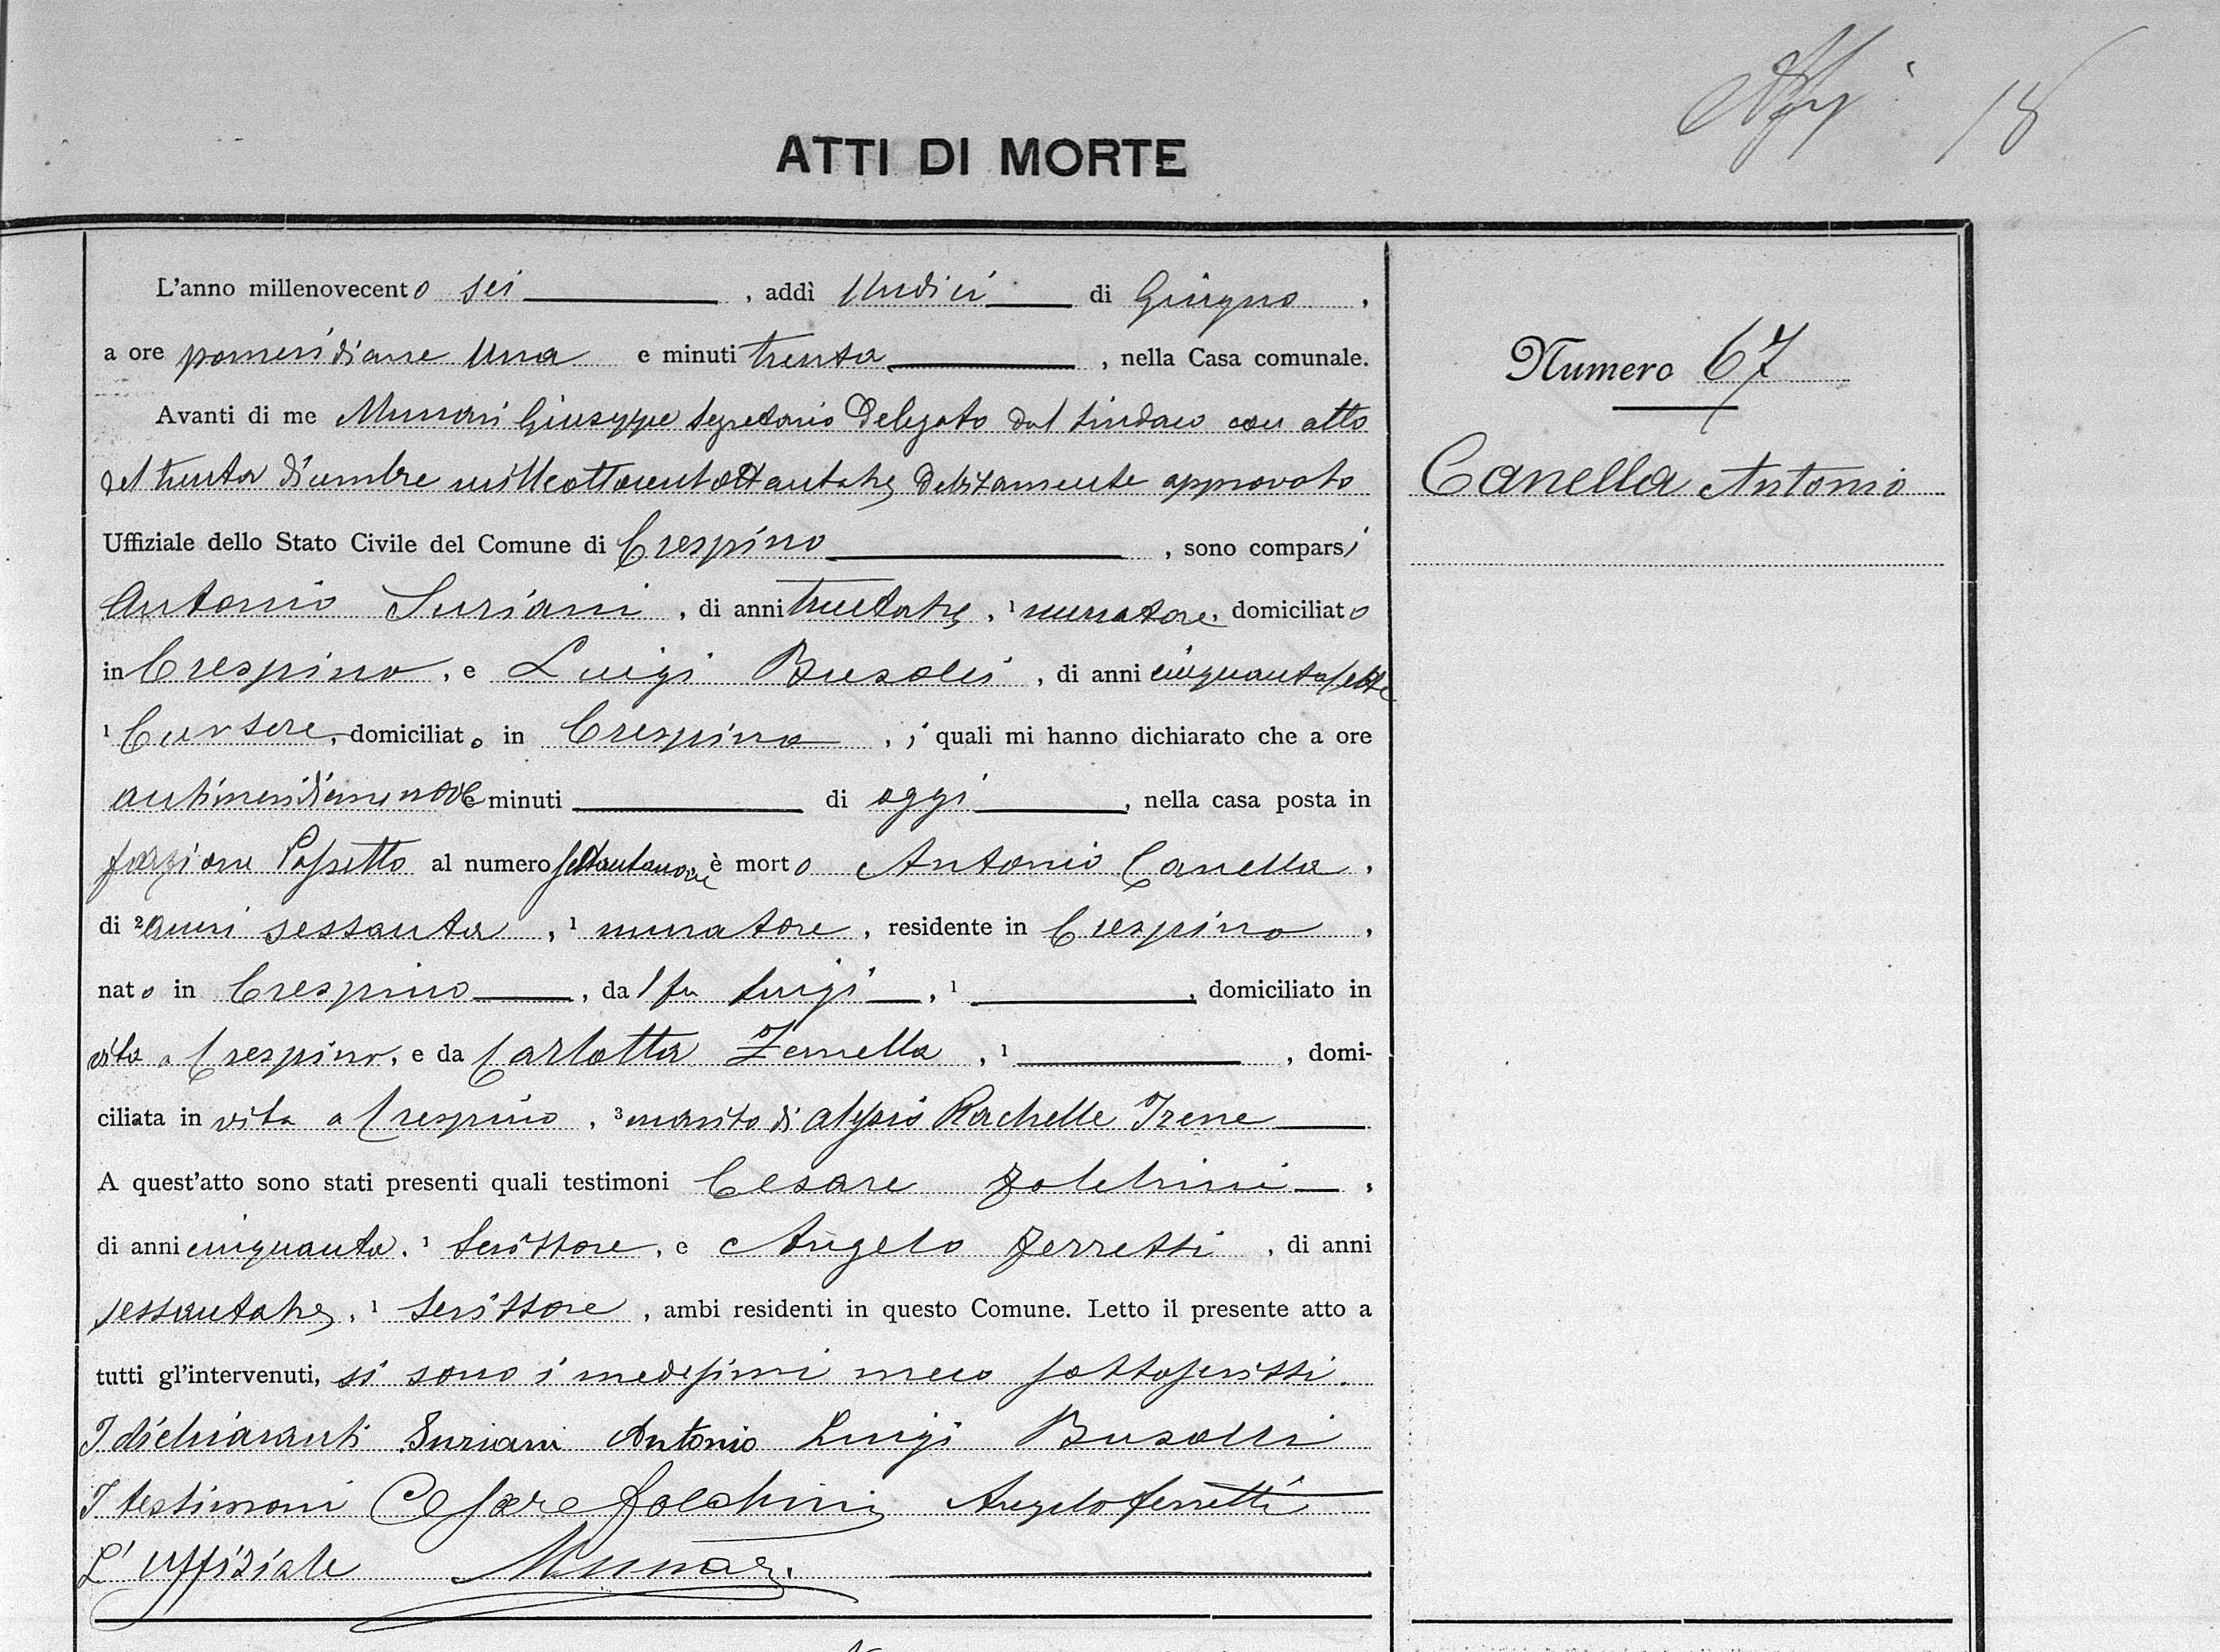 18
ATTI DI MORTE
L'anno millenovecento sei, addì Undici di Giugno,
a ore pomeridiane Una e minuti trenta, nella Casa comunale.
Avanti di me Munari Giuseppe Segretario Delegato dal Sindaco con atto
del trenta Dicembre milleottocentottantatre debitamente approvato
Uffiziale dello Stato Civile del Comune di Crespino, sono comparsi
Antonio Suriani, di anni trentatre, 1 muratore, domiciliato
in Crespino, e Luigi Busolli, di anni cinquantasette
1 Cursore, domiciliato in Crespino, i quali mi hanno dichiarato che a ore
antimeridiane nove e minuti di oggi, nella casa posta in
frazione Passetto al numero settantanove è morto Antonio Canella,
di 2 anni sessanta, 1 muratore, residente in Crespino,
nato in Crespino, dal fu Luigi, 1, domiciliato in
vita a Crespino, e da Carlotta Zemella, 1, domi-
ciliata in vita a Crespino, 3 marito di Rachelle Irene
A quest'atto sono stati presenti quali testimoni Cesare Folchini,
di anni cinquanta, 1 Scrittore, e Angelo Ferretti, di anni
sessantatre, 1 Scrittore, ambi residenti in questo Comune. Letto il presente atto a
tutti gl'intervenuti, si sono i medesimi meco sottoscritti.
I dichiaranti Suriani Antonio Luigi Busolli
I testimoni Cesare Folchini Angelo Ferretti
L'Uffiziale Munari.
Numero 67
Canella Antonio